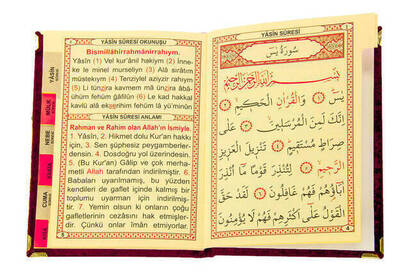 YÂSİN SÛRESİ OKUNUŞU
Bismillâhirrahmânirrahıym.
Yâsîn (1) Vel kur'ânil hakiym (2) İnne-
ke le minel murseliyn (3) Alâ sırâtım
müstekıym (4) Tenziylel aziyzir rahıym
(5) Li tünzira kavmem mâ ünzira âbâ-
ühüm fehüm ğafilûn (6) Le kad hakkal
kavlü alâ ekserihim fehüm lâ yü'minûn
YÂSİN SÛRESİ ANLAMI
Rahman ve Rahim olan Allah'ın İsmiyle.
1. Yâsîn, 2. Hikmet dolu Kur'an hakkı
için, 3. Sen şüphesiz peygamberler-
densin. 4. Dosdoğru yol üzerindesin.
5. (Bu Kur'an) Gâlip ve çok merha-
metli Allah tarafından indirilmiştir. 6.
Babaları uyarılmamış, bu yüzden
kendileri de gaflet içinde kalmış bir
toplumu uyarman için indirilmiş-
tir. 7. Yemin olsun ki onların çoğu
gafletlerinin cezâsını hak etmişler-
dir. Çünkü onlar îmân etmiyorlar.
YÂSİN
MÜLK
NEBE
CUMA
YÂSİN SÛRESİ
سُورَةُ يٰسٓ
بِسْمِ اللّٰهِ الرَّحْمٰنِ الرَّحِيمِ
يٰسٓ ﴿١﴾ وَالْقُرْاٰنِ الْحَكِيمِ ﴿٢﴾
اِنَّكَ لَمِنَ الْمُرْسَلِينَ ﴿٣﴾ عَلٰى
صِرَاطٍ مُسْتَقِيمٍ ﴿٤﴾ تَنْزِيلَ الْعَزِيزِ
الرَّحِيمِ ﴿٥﴾ لِتُنْذِرَ قَوْمًا مَٓا اُنْذِرَ
اٰبَٓاؤُ۬هُمْ فَهُمْ غَافِلُونَ ﴿٦﴾ لَقَدْ حَقَّ
الْقَوْلُ عَلٰٓى اَكْثَرِهِمْ فَهُمْ لَا يُؤْمِنُونَ